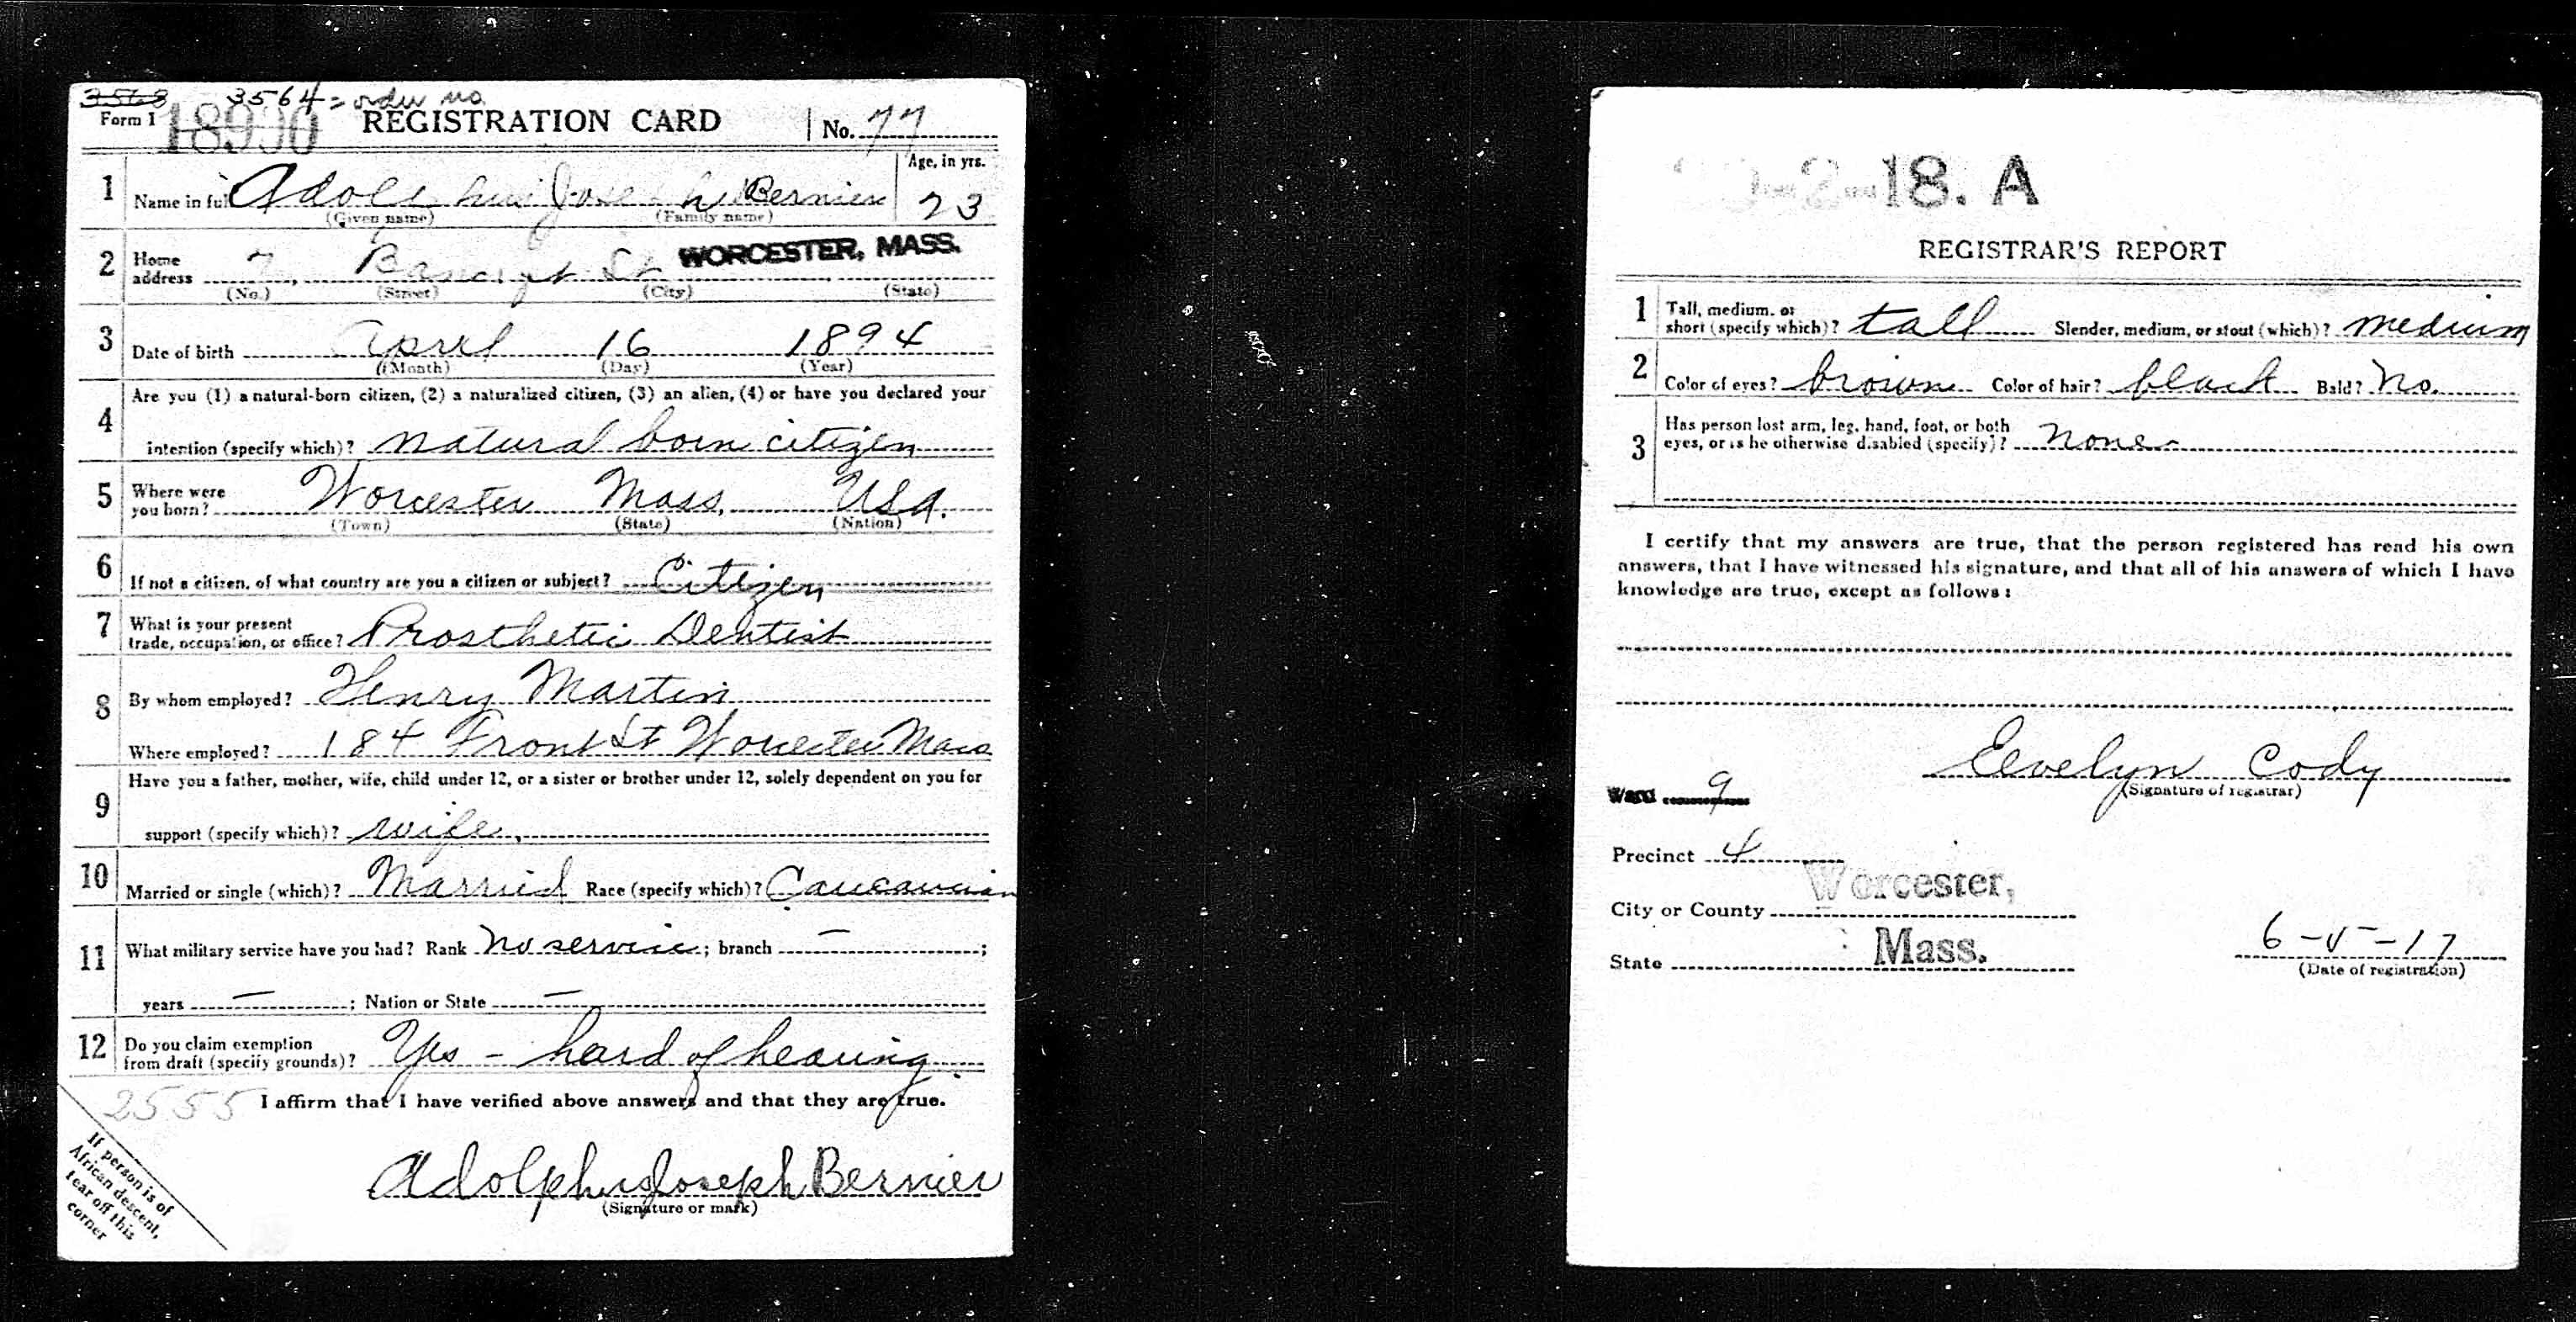 3568 3564 = order no.
Form 1 18990 REGISTRATION CARD No. 77
1 Name in full Adolphus Joseph Bernier Age, in yrs. 23
(Given name) (Family name)
2 Home address 7, Bancroft St WORCESTER, MASS.
(No.) (Street) (City) (State)
3 Date of birth April 16 1894
(Month) (Day) (Year)
4 Are you (1) a natural-born citizen, (2) a naturalized citizen, (3) an alien, (4) or have you declared your
intention (specify which)? natural born citizen
5 Where were you born? Worcester Mass. USA.
(Town) (State) (Nation)
6 If not a citizen, of what country are you a citizen or subject? Citizen
7 What is your present
trade, occupation, or office? Prosthetic Dentist
8 By whom employed? Henry Martin
Where employed? 184 Front St Worcester Mass
9 Have you a father, mother, wife, child under 12, or a sister or brother under 12, solely dependent on you for
support (specify which)? wife.
10 Married or single (which)? Married Race (specify which)? Caucausian
11 What military service have you had? Rank no service; branch —;
years —; Nation or State —
12 Do you claim exemption
from draft (specify grounds)? Yes - hard of hearing.
2555 I affirm that I have verified above answers and that they are true.
Adolphus Joseph Bernier
(Signature or mark)
If person is of
African descent,
tear off this
corner
-2-18. A
REGISTRAR'S REPORT
1 Tall, medium, or
short (specify which)? tall Slender, medium, or stout (which)? medium
2 Color of eyes? brown Color of hair? black Bald? No.
3 Has person lost arm, leg, hand, foot, or both
eyes, or is he otherwise disabled (specify)? none
I certify that my answers are true, that the person registered has read his own
answers, that I have witnessed his signature, and that all of his answers of which I have
knowledge are true, except as follows:
Eevelyn Cody
(Signature of registrar)
Ward 9
Precinct 4
City or County Worcester,
State Mass.
6-5-17
(Date of registration)